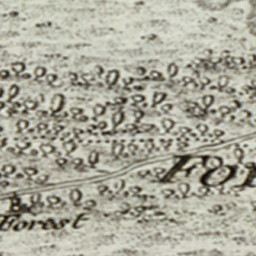 For
Forest